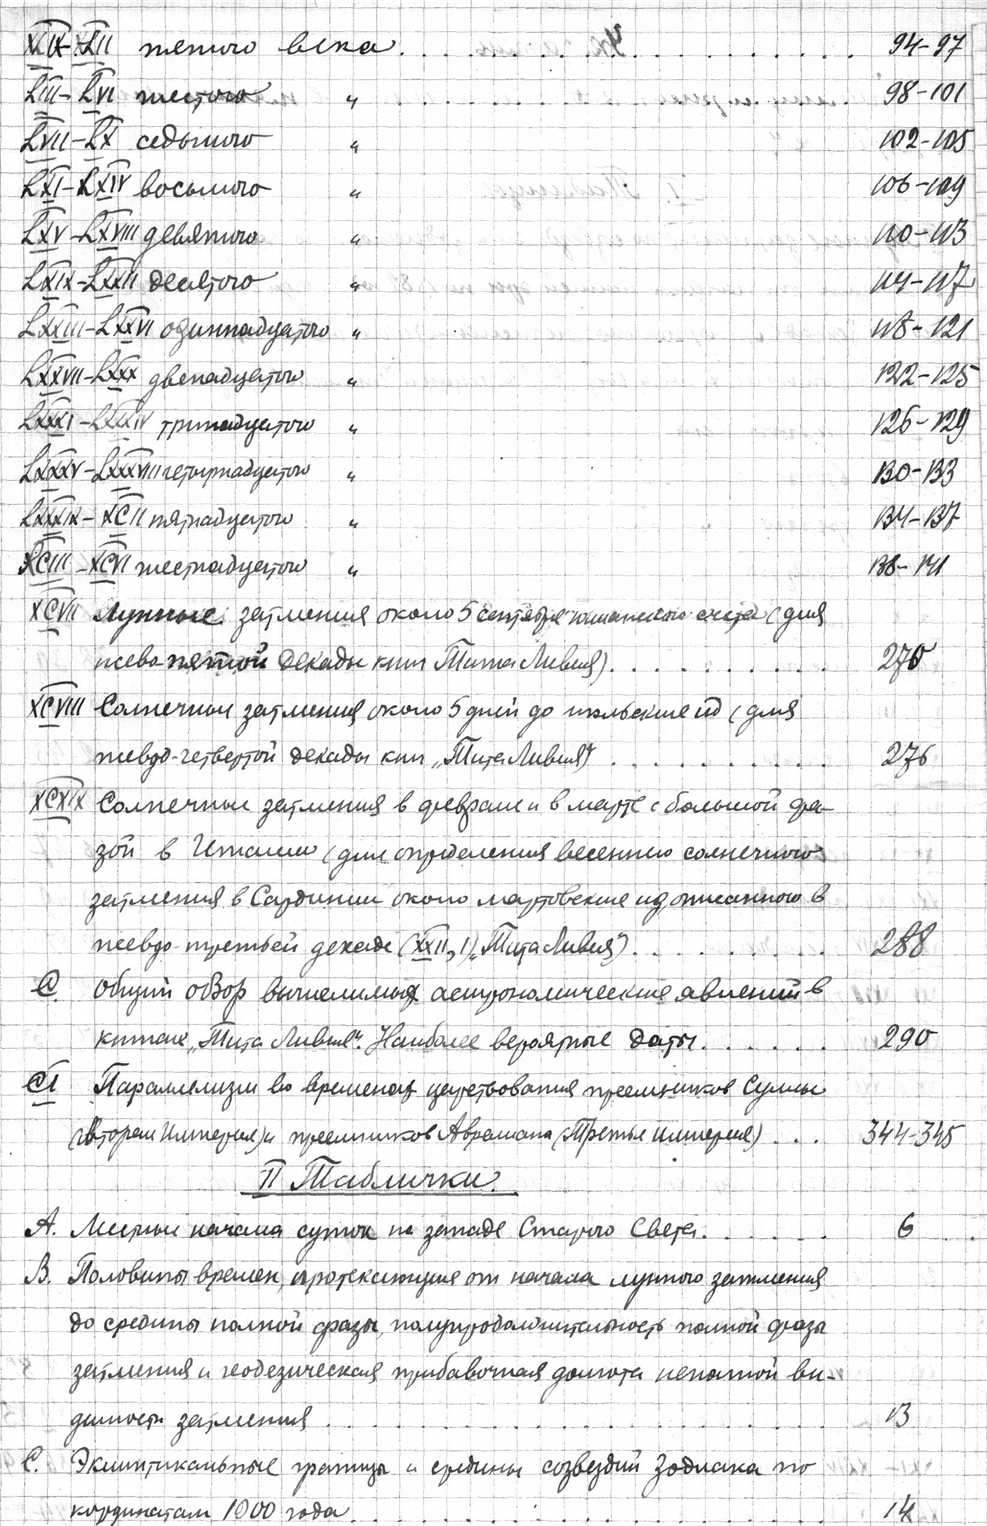 XLIX-LII пятого века. . . . . . . . . . . . . 94-97
LIII-LVI шестого „ 98-101
LVII-LX седьмого „ 102-105
LXI-LXIV восьмого „ 106-109
LXV-LXVIII девятого „ 110-113
LXIX-LXXII десятого „ 114-117
LXXIII-LXXVI одиннадцатого „ 118-121
LXXVII-LXXX двенадцатого „ 122-125
LXXXI-LXXXIV тринадцатого „ 126-129
LXXXV-LXXXVIII четырнадцатого „ 130-133
LXXXIX-XCII пятнадцатого „ 134-137
XCIII-XCVI шестнадцатого „ 138-141
XCVII Лунные затмения около 5 сентября юлианского счета (для
псевдо пятой декады книг Тита Ливия). . . . . . . . . . 270
XCVIII Солнечные затмения около 5 дней до июльских ид (для
псевдо-четвертой декады книг „Тита Ливия") . . . . . . . . . . 276
XCXIX Солнечные затмения в феврале и в марте с большой фа-
зой в Италии (для определения весеннего солнечного
затмения в Сардинии около мартовских ид описанного в
псевдо-третьей декаде (XXII, 1) „Тита Ливия"). . . . . . . . . 288
C. Общий обзор вычислимых астрономических явлений в
книгах „Тита Ливия". Наиболее вероятные даты. . . . . . 290
CI Параллелизм во временах царствования преемников Суллы
(Вторая Империя) и преемников Аврелиана (Третья империя) . . . 344-345
II Таблички.
A. Местные начала суток на западе Старого Света. . . . . . 6
B. Половины времен, протекающих от начала лунного затмения
до средины полной фазы, полупродолжительность полной фазы
затмения и геодезическая прибавочная долгота неполной ви-
димости затмения . . . . . . . . . . . . . . . 13
C. Эклиптикальные границы и средины созвездий Зодиака по
координатам 1900 года. . . . . . . . . . . . . . 14